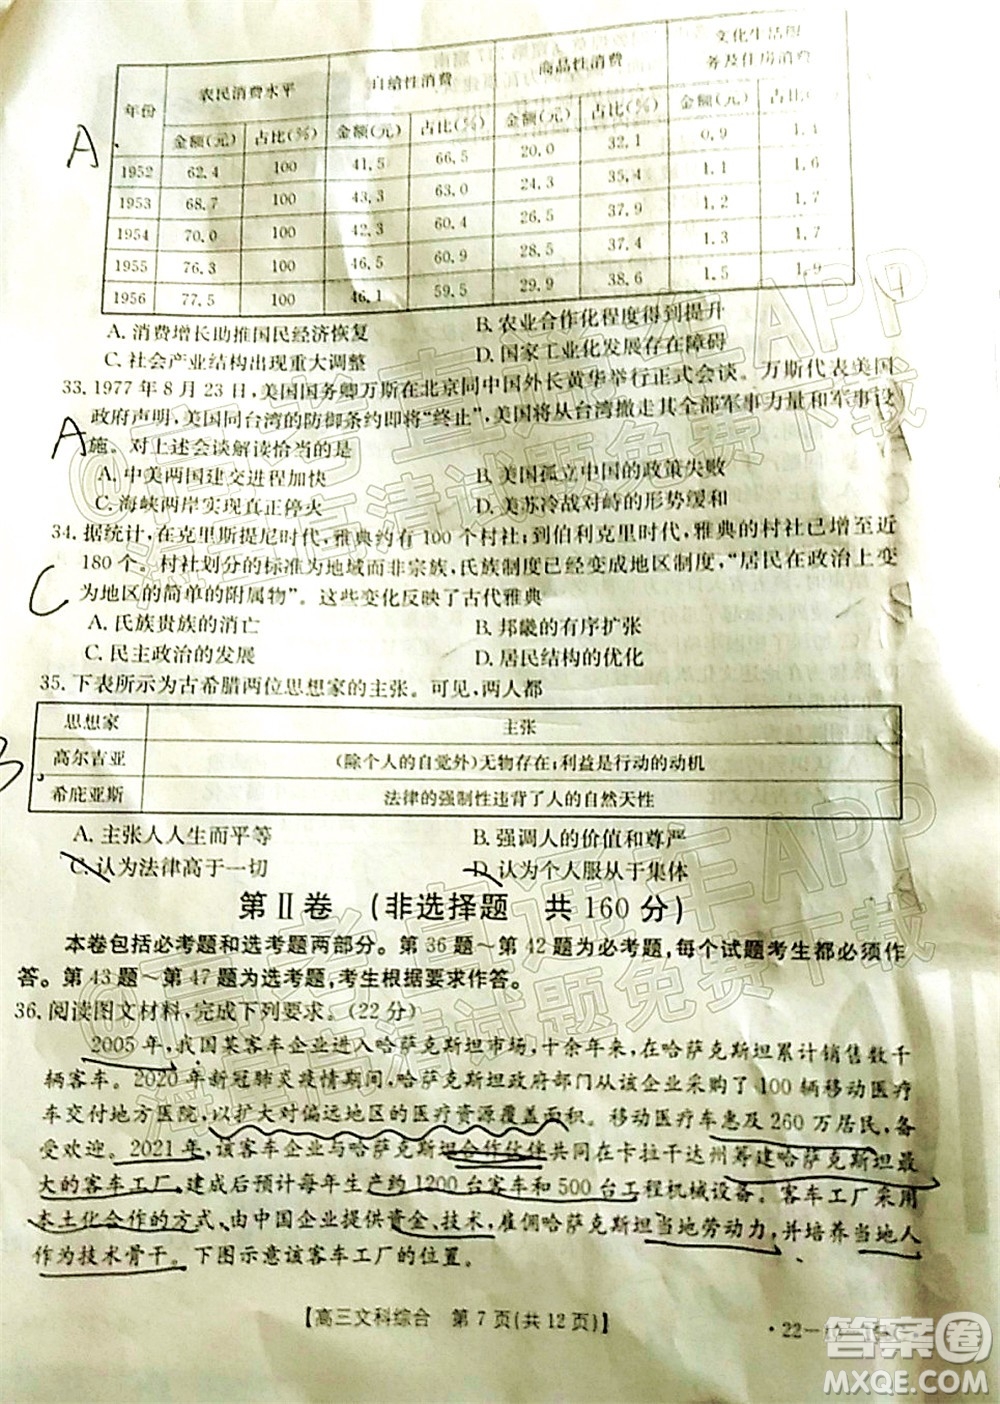 年份 农民消费水平 自给性消费 商品性消费 文化生活服
务及住房消费
金额(元) 占比(%) 金额(元) 占比(%) 金额(元) 占比(%) 金额(元) 占比(%)
1952 62.4 100 41.5 66.5 20.0 32.1 0.9 1.4
1953 68.7 100 43.3 63.0 24.3 35.4 1.1 1.6
1954 70.0 100 42.3 60.4 26.5 37.9 1.2 1.7
1955 76.3 100 46.5 60.9 28.5 37.4 1.3 1.7
1956 77.5 100 46.1 59.5 29.9 38.6 1.5 1.9
A
A. 消费增长助推国民经济恢复 B. 农业合作化程度得到提升
C. 社会产业结构出现重大调整 D. 国家工业化发展存在障碍
33. 1977 年 8 月 23 日,美国国务卿万斯在北京同中国外长黄华举行正式会谈。万斯代表美国
政府声明,美国同台湾的防御条约即将“终止”,美国将从台湾撤走其全部军事力量和军事设
施。对上述会谈解读恰当的是
A
A. 中美两国建交进程加快 B. 美国孤立中国的政策失败
C. 海峡两岸实现真正停火 D. 美苏冷战对峙的形势缓和
34. 据统计,在克里斯提尼时代,雅典约有 100 个村社;到伯利克里时代,雅典的村社已增至近
180 个。村社划分的标准为地域而非宗族,氏族制度已经变成地区制度,“居民在政治上变
为地区的简单的附属物”。这些变化反映了古代雅典
C
A. 氏族贵族的消亡 B. 邦畿的有序扩张
C. 民主政治的发展 D. 居民结构的优化
35. 下表所示为古希腊两位思想家的主张。可见,两人都
思想家 主张
高尔吉亚 (除个人的自觉外)无物存在;利益是行动的动机
希庇亚斯 法律的强制性违背了人的自然天性
A. 主张人人生而平等 B. 强调人的价值和尊严
C. 认为法律高于一切 D. 认为个人服从于集体
第Ⅱ卷 (非选择题 共 160 分)
本卷包括必考题和选考题两部分。第 36 题~第 42 题为必考题,每个试题考生都必须作
答。第 43 题~第 47 题为选考题,考生根据要求作答。
36. 阅读图文材料,完成下列要求。(22 分)
2005 年,我国某客车企业进入哈萨克斯坦市场,十余年来,在哈萨克斯坦累计销售数千
辆客车。2020 年新冠肺炎疫情期间,哈萨克斯坦政府部门从该企业购买了 100 辆移动医疗
车交付地方医院,以扩大对偏远地区的医疗资源覆盖面积。移动医疗车惠及 260 万居民,备
受欢迎。2021 年,该客车企业与哈萨克斯坦合作伙伴共同在卡拉干达州筹建哈萨克斯坦最
大的客车工厂,建成后预计每年生产约 1200 台客车和 500 台工程机械设备。客车工厂采用
本土化合作的方式,由中国企业提供资金、技术,雇佣哈萨克斯坦当地劳动力,并培养当地人
作为技术骨干。下图示意该客车工厂的位置。
【高三文科综合 第 7 页(共 12 页)】
答案圈
MXQE.COM